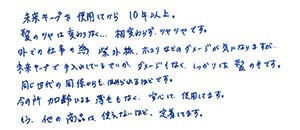 未来キープを使用してから10年以上。
髪のツヤは変わりなく…相変わらず、ツヤツヤです。
外での仕事の為 紫外線、ホコリなどのダメージが気になりますが…
未来キープで手入れしているせいか、ダメージもなく、しっかりした髪のもです。
同じ世代の関係からも、ほめられるほどです。
今の所 加齢による薄毛もなく、安心して使用してます。
もう、他の商品は使えないほど、定着してます。